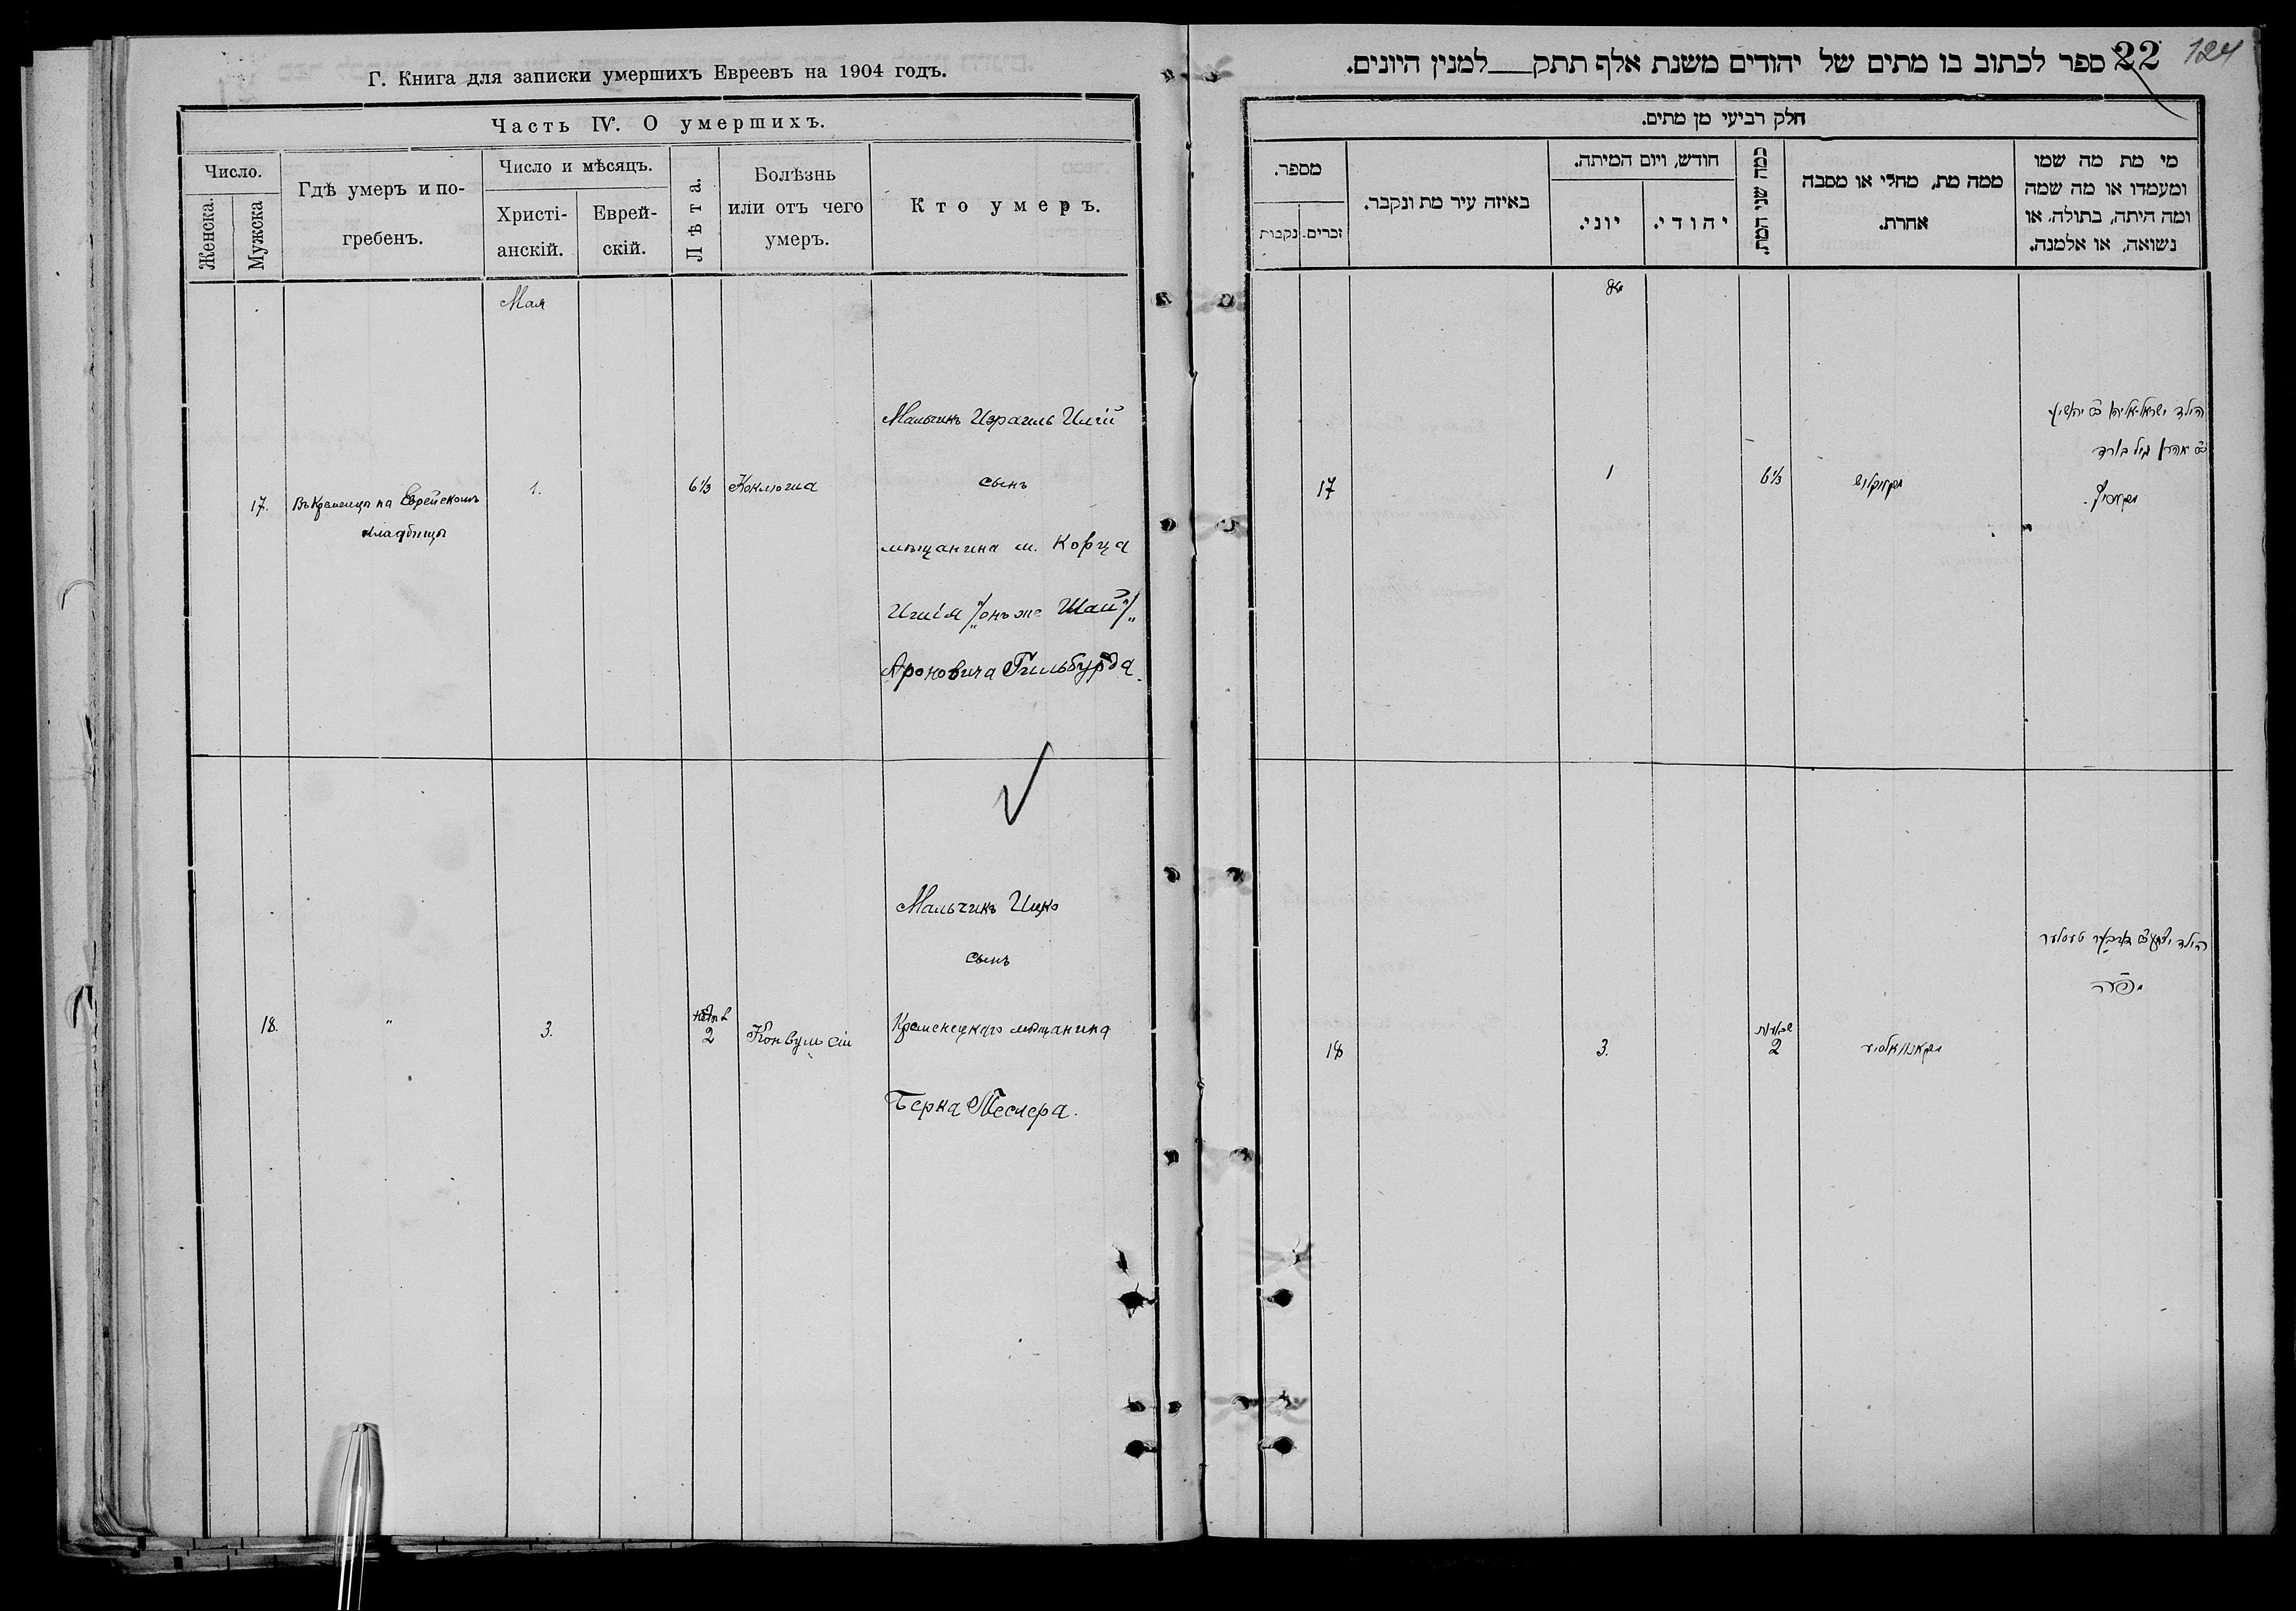 Г. Книга для записки умершихъ Евреевъ на 1904 годъ.
Часть IV. О умершихъ.
Число.
Женска.
Мужска
Гдѣ умеръ и по-
гребенъ.
Число и мѣсяцъ.
Христі-
анскій.
Еврей-
скій.
Лѣта.
Болѣзнь
или отъ чего
умеръ.
Кто умеръ.
Мая
17.
Въ Кременцѣ на Еврейскомъ
кладбищѣ
1.
6⅓
Коклюша
Мальчикъ Израиль
сынъ
мѣщанина м. Корца
онъ же
Ароновича Гильбурда
18.
"
3.
2
Конвульсіи
Мальчикъ Ицко
сынъ
Кременецкаго мѣщанина
Берка Теслера.
22 ספר לכתוב בו מתים של יהודים משנת אלף תתק למנין היונים.
124
חלק רביעי מן מתים.
מספר.
נקבות
זכרים.
באיזה עיר מת ונקבר.
חודש, ויום המיתה.
יוני.
יהודי.
כמה שני המת.
ממה מת, מחלי או מסבה
אחרת.
מי מת מה שמו
ומעמדו או מה שמה
ומה היתה, בתולה, או
נשואה, או אלמנה.
17
1
6⅓
הילד
18
3.
2
הילד